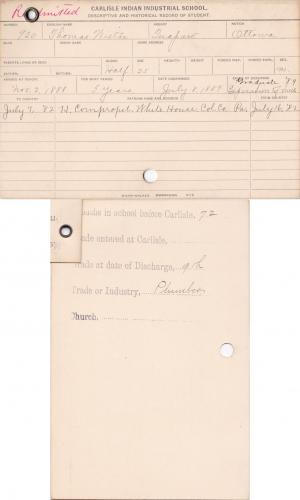 Readmitted
CARLISLE INDIAN INDUSTRIAL SCHOOL.
DESCRIPTIVE AND HISTORICAL RECORD OF STUDENT.
NUMBER ENGLISH NAME AGENCY NATION
920 Thomas Mistic Quapaw Ottawa
BAND INDIAN NAME HOME ADDRESS
PARENTS LIVING OR DEAD BLOOD AGE HEIGHT WEIGHT FORCED INSP. FORCED EXPR. SEX
FATHER MOTHER Half 20 M
ARRIVED AT SCHOOL FOR WHAT PERIOD DATE DISCHARGED CAUSE OF DISCHARGE
Graduate '89
Nov. 2, 1888 5 Years July 8, 1889
TO COUNTRY PATRONS NAME AND ADDRESS FROM COUNTRY
July 7, '82 W. Compropst. White House Col. Co. Pa.
Months in school before Carlisle, 72
Grade entered at Carlisle,
Grade at date of Discharge, 9th
Trade or Industry, Plumber
Church,